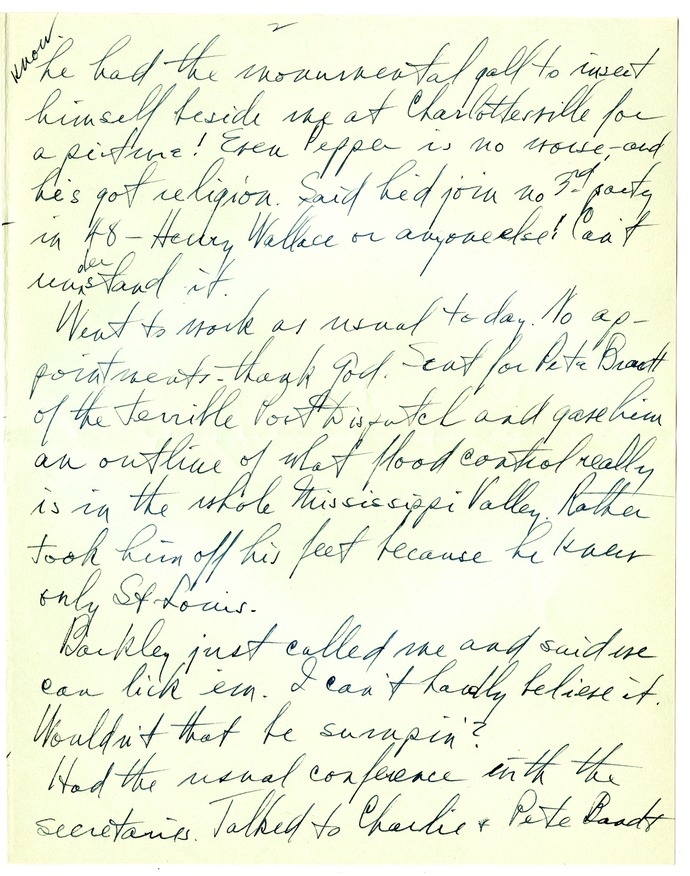 2
know.
he had the monumental gall to insert
himself beside me at Charlottesville for
a picture! Even Pepper is no worse-and
he's got religion. Said he'd join no 3rd party
in 48 - Henry Wallace or anyone else! Can't
understand it.
Went to work as usual today. No ap-
pointments-thank God. Sent for Pete Brandt
of the terrible Post Dispatch and gave him
an outline of what flood control really
is in the whole Mississippi Valley. Rather
took him off his feet because he knew
only St. Louis.
Barkley just called me and said we
can lick 'em. I can't hardly believe it.
Wouldn't that be sumpin'?
Had the usual conference with the
secretaries. Talked to Charlie & Pete Brandt